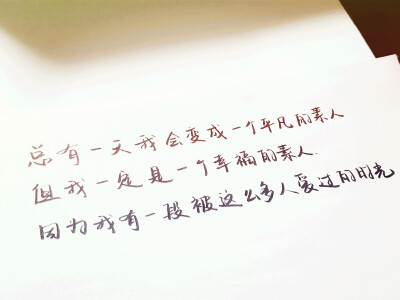 总有一天我会变成一个平凡的素人
但我一定是一个幸福的素人.
因为我有一段被这么多人爱过的时光